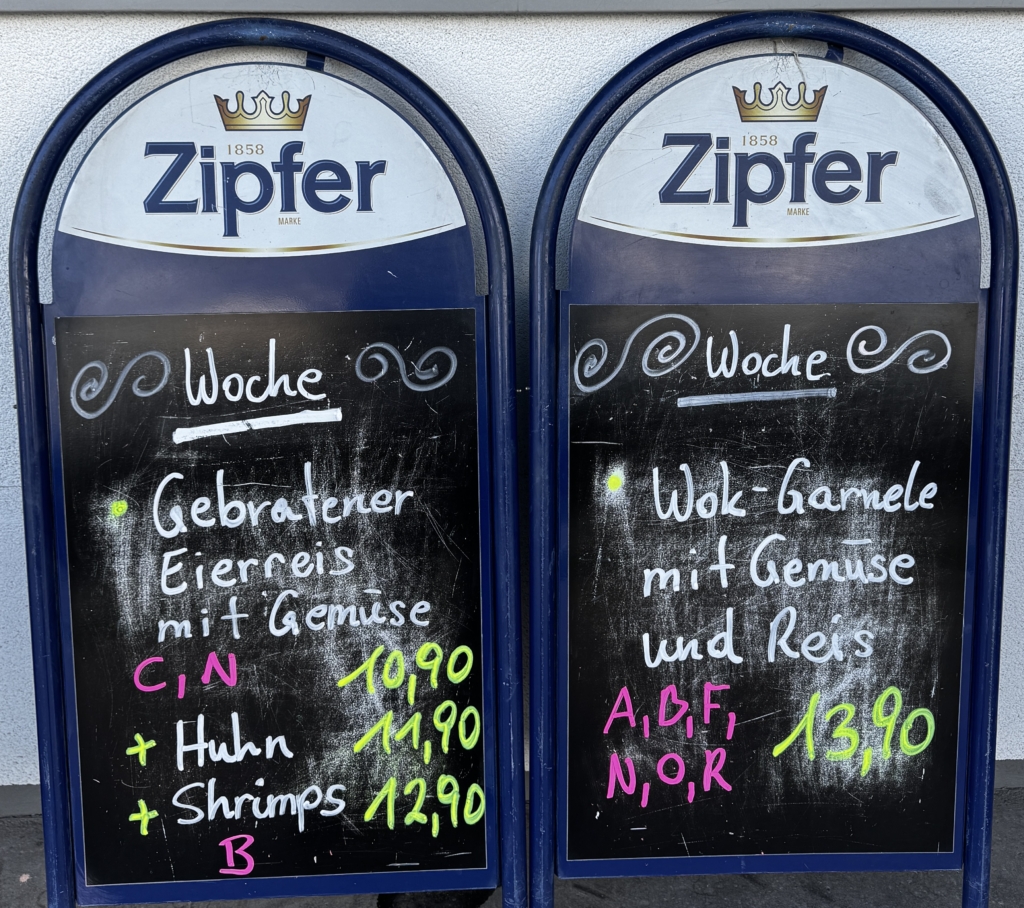 1858
Zipfer
MARKE
Woche
Gebratener
Eierreis
mit Gemüse
C, N 10,90
+ Huhn 11,90
+ Shrimps 12,90
B
1858
Zipfer
MARKE
Woche
Wok-Garnele
mit Gemüse
und Reis
A, B, F,
N, O, R
13,90